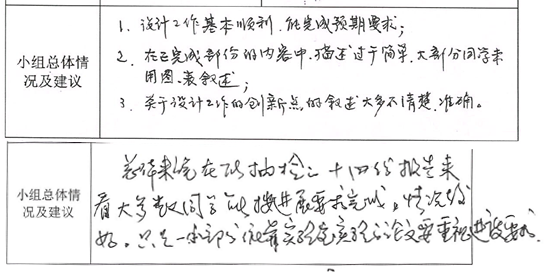 小组总体情
况及建议
1. 设计工作基本顺利,能完成预期要求;
2. 在已完成部份的内容中,描述过于简单,大部分同学未
用图、表叙述;
3. 关于设计工作的创新点的叙述大多不清楚、准确。
小组总体情
况及建议
总体来说在所抽检二十四份报告来
看大多数同学能按进展要求完成,情况较
好。只是一小部分 实验室实验 论文要重视进度要求.